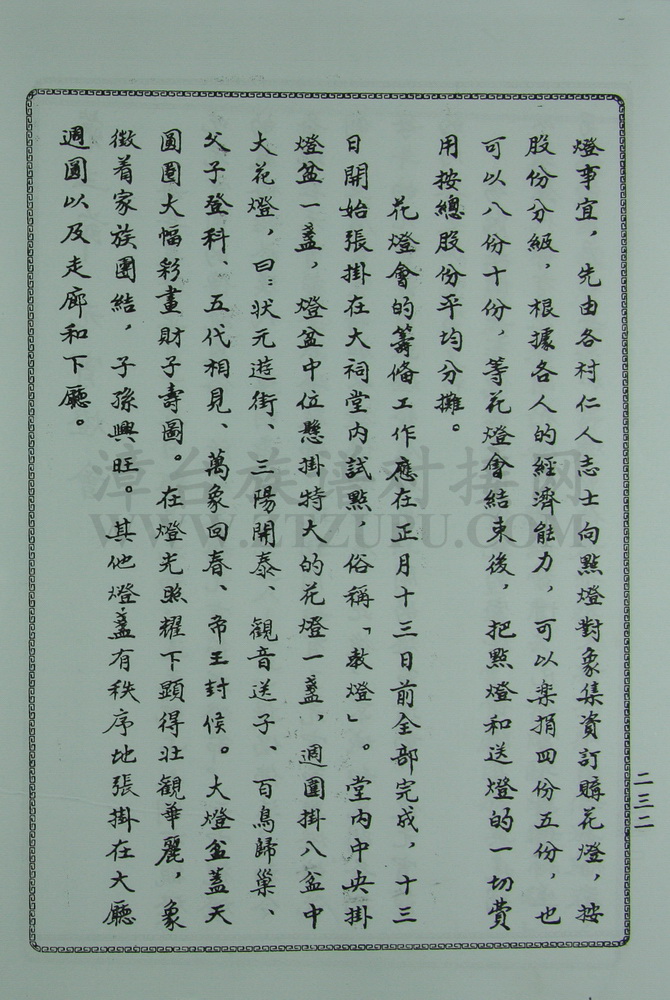 燈事宜，先由各村仁人志士向點燈對象集資訂購花燈，按
股份分級，根據各人的經濟能力，可以樂捐四份五份，也
可以八份十份，等花燈會結束後，把點燈和送燈的一切費
用按總股份平均分攤。
花燈會的籌備工作應在正月十三日前全部完成，十三
日開始張掛在大祠堂內試點，俗稱「教燈」。堂內中央掛
燈盆一盞，燈盆中位懸掛特大的花燈一盞，週圍掛八盆中
大花燈，曰：狀元遊街、三陽開泰、觀音送子、百鳥歸巢、
父子登科、五代相見、萬象回春、帝王封侯。大燈盆蓋天
圓圈大幅彩畫財子壽圖。在燈光照耀下顯得壯觀華麗，象
徵着家族團結，子孫興旺。其他燈盞有秩序地張掛在大廳
週圓以及走廊和下廳。
二三二
漳台族譜对接网
WWW.ZTZUPU.COM